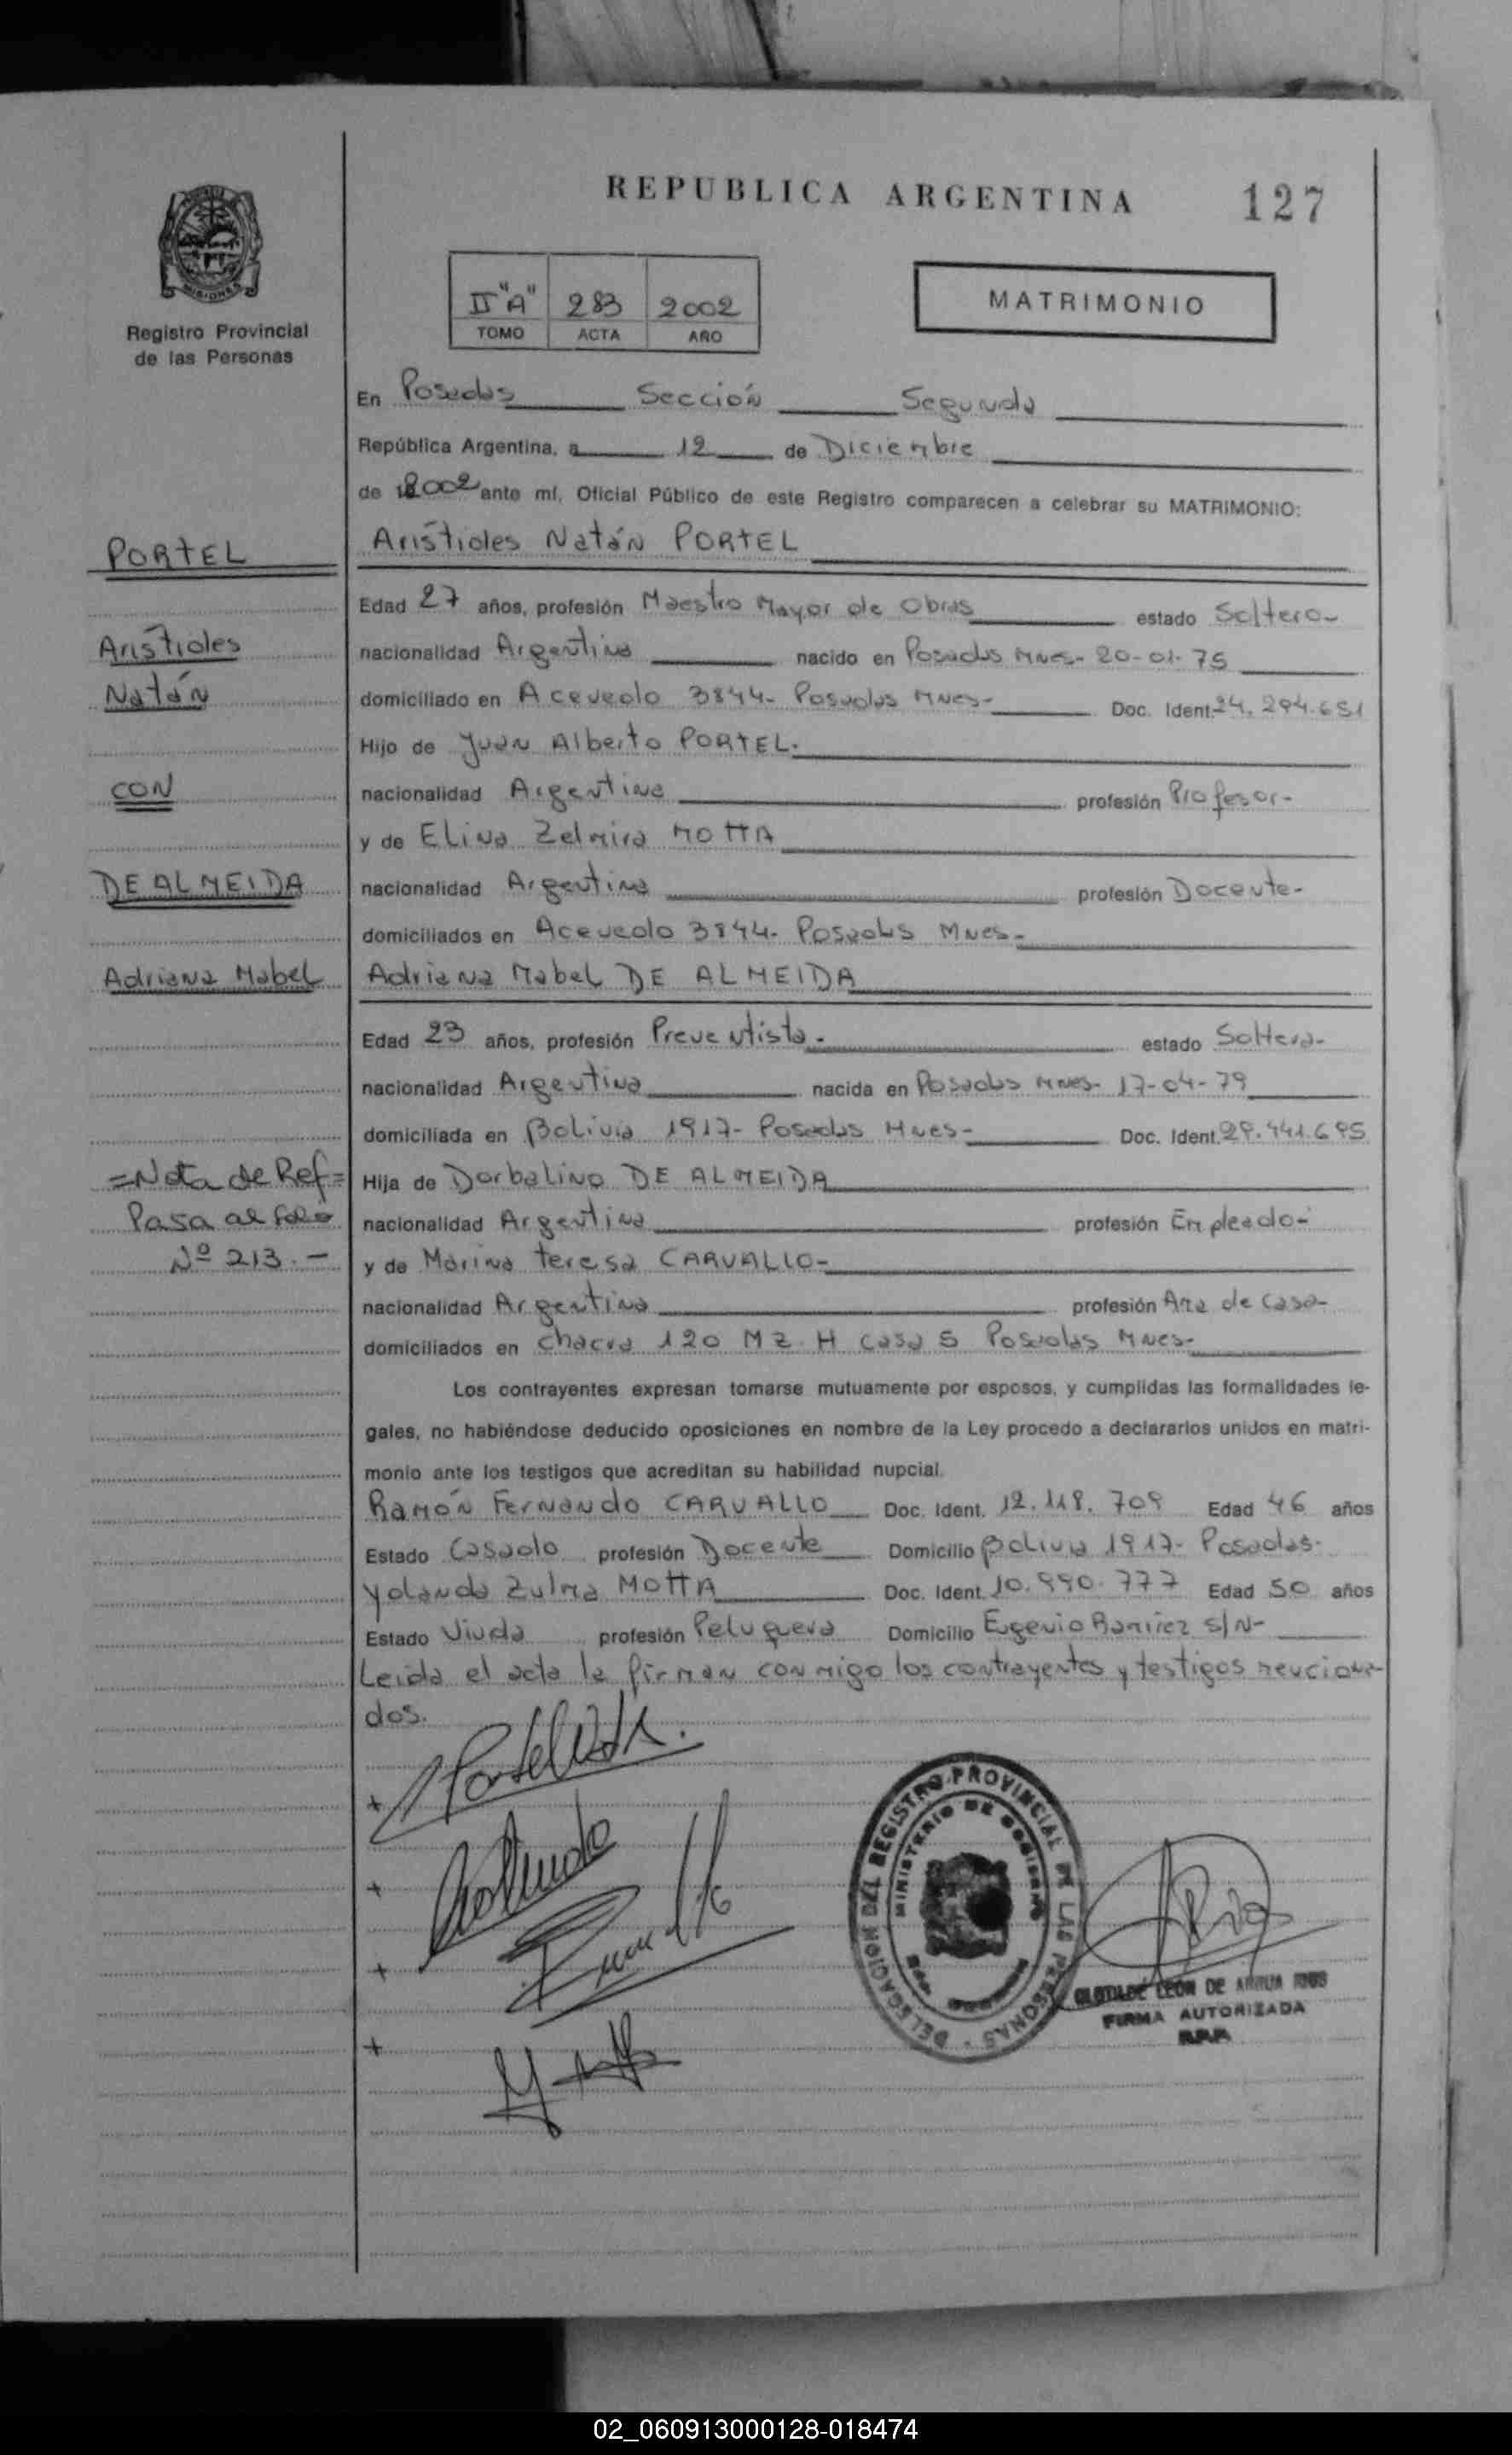 REPUBLICA ARGENTINA
127
MISIONES
Registro Provincial
de las Personas
II "A" 283 2002
TOMO ACTA AÑO
MATRIMONIO
En Posadas Sección Segunda
República Argentina, a 12 de Diciembre
de 2002 ante mí, Oficial Público de este Registro comparecen a celebrar su MATRIMONIO:
PORTEL
Arístides Natán PORTEL
Edad 27 años, profesión Maestro Mayor de Obras estado Soltero-
Arístides
nacionalidad Argentina nacido en Posadas Mnes- 20-01-75
Natán
domiciliado en Acevedo 3844- Posadas Mnes- Doc. Ident. 24.294.651
Hijo de Juan Alberto PORTEL.
CON
nacionalidad Argentina profesión Profesor-
y de Elina Zelmira MOTTA
DE ALMEIDA
nacionalidad Argentina profesión Docente-
domiciliados en Acevedo 3844- Posadas Mnes-
Adriana Mabel
Adriana Mabel DE ALMEIDA
Edad 23 años, profesión Preventista. estado Soltera-
nacionalidad Argentina nacida en Posadas Mnes- 17-04-79
domiciliada en Bolivia 1917- Posadas Mnes- Doc. Ident.
=Nota de Ref=
Hija de Dorbalino DE ALMEIDA
Pasa al folio
nacionalidad Argentina profesión Empleado-
Nº 213.-
y de Marina Teresa CARVALLO-
nacionalidad Argentina profesión Ama de Casa-
domiciliados en Chacra 120 Mz. H Casa 5 Posadas Mnes-
Los contrayentes expresan tomarse mutuamente por esposos, y cumplidas las formalidades le-
gales, no habiéndose deducido oposiciones en nombre de la Ley procedo a declararlos unidos en matri-
monio ante los testigos que acreditan su habilidad nupcial.
Ramón Fernando CARVALLO Doc. Ident. 12.118.709 Edad 46 años
Estado Casado profesión Docente Domicilio Bolivia 1917- Posadas-
Yolanda Zulma MOTTA Doc. Ident. 10.990.777 Edad 50 años
Estado Viuda profesión Peluquera Domicilio Eugenio Ramírez s/N-
Leida el acta la firman conmigo los contrayentes y testigos menciona-
dos.
DELEGACION DEL REGISTRO PROVINCIAL DE LAS PERSONAS
MINISTERIO DE GOBIERNO
LEON DE
FIRMA AUTORIZADA
R.P.P.
02_060913000128-018474